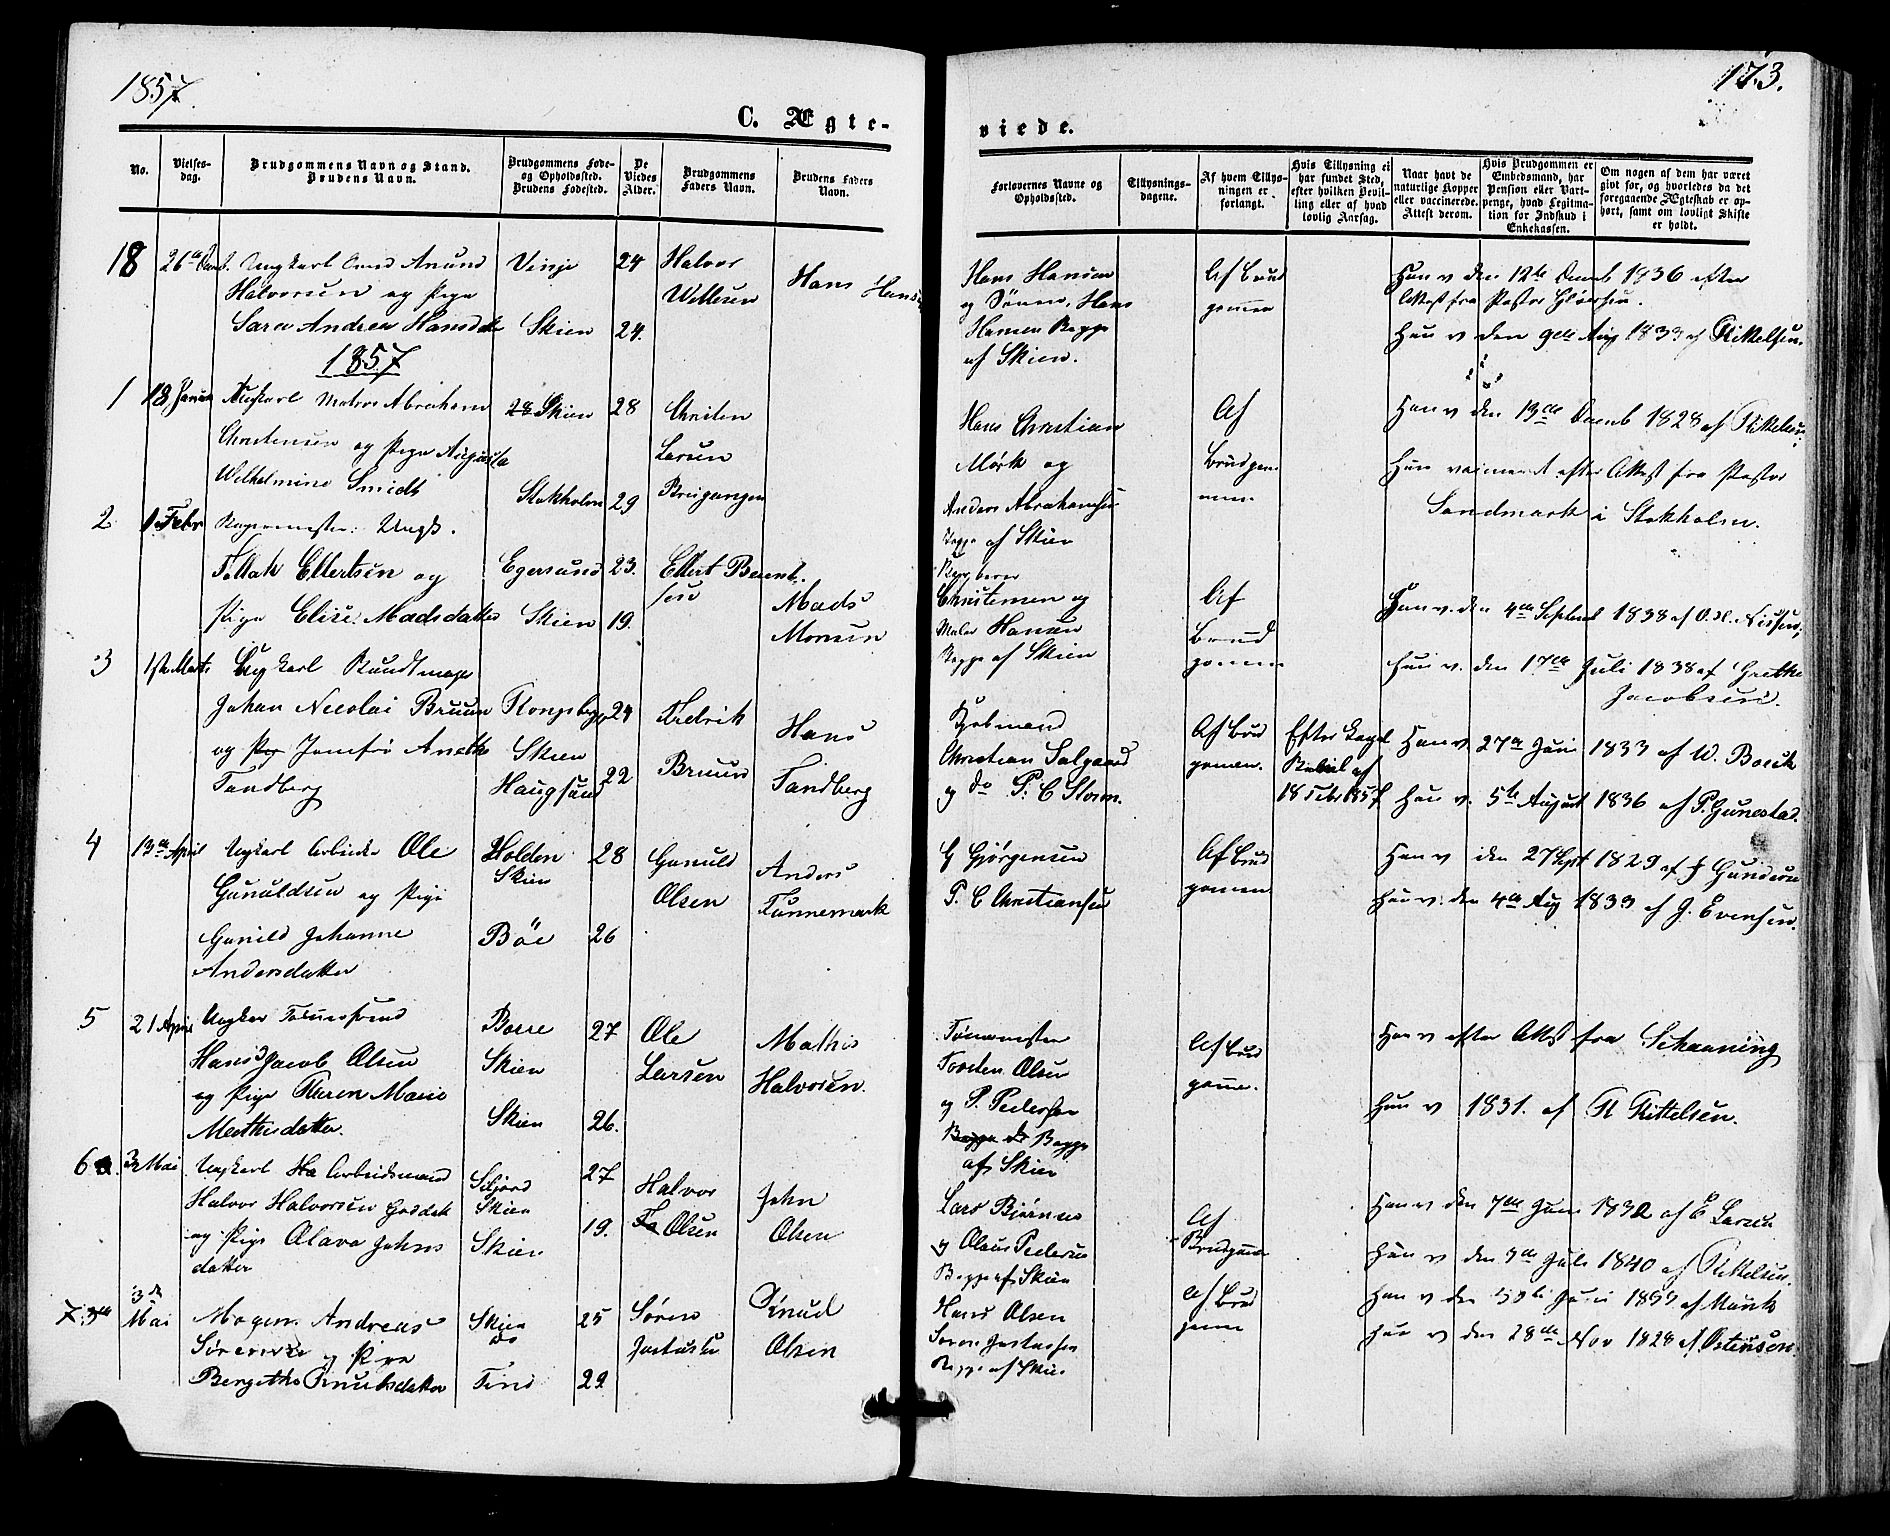 1857.
173.
C. Ægte-
viede.
No.
Vielses-
dag.
Brudgommens Navn og Stand.
Brudens Navn.
Brudgommens Føde-
og Opholdssted.
Brudens Fødested.
De
Viedes
Alder.
Brudgommens
Faders Navn.
Brudens Faders
Navn.
Forlovernes Navne og
Opholdssted.
Tillysnings-
dagene.
Af hvem Tillys-
ningen er
forlangt.
Hvis Tillysning ei
har fundet Sted,
efter hvilken Bevil-
ling eller af hvad
lovlig Aarsag.
Naar havt de
naturlige Kopper
eller vaccinerede.
Attest derom.
Hvis Brudgommen er
Embedsmand, har
Pension eller Vart-
penge, hvad Legitima-
tion for Indskud i
Enkekassen.
Om nogen af dem har været
givt for, og hvorledes da det
foregaaende Ægteskab er op-
hørt, samt om lovligt Skifte
er holdt.
18
Ungkarl Anund
Halvorsen og Pige
Sara Andrea Hansdtr
Vinje
Skien
24
24.
Halvor
Hans Hansen
Hans Hansen
og Sønnen, Hans
Hansen Begge
af Skien.
Af Brud
gomen
Han v den 12te Decemb 1836 efter
Attest fra Pastor
Hun v den 9de Aug 1833 af Kittelsen.
1857
1
18 Januar
Ungkarl Matros Abraham
Christensen og Pige Augusta
Wilhelmine Smidt
28 Skien
Stokholm
28
29
Christen
Larsen
Hans Christian
Mørk og
Anders Abrahamsen
Begge af Skien
Af
Brudgom
men
Han v den 13de Decemb 1828 af Kittelsen,
Hun vaxineret efter Attest fra Pastor
Sandmark i Stokholm.
2
1 Febr
Bagermester: Ungk.
Ellertsen og
Pige Elise Madsdatter
Egersund
Skien
23.
19.
Ellert Berent
sen
Mads
Monsen
Christensen og
Maler Hansen
Begge af Skien
Af
Brud
gomen
Han v. den 4de Septemb 1838 af O. N. Nissen,
Hun v. den 17de Juli 1838 af Grethe
Jacobsen.
3
1ste Marts
Ungkarl Bundtmager
Johan Nicolai Bruun
og Pige Jomfru Anethe
Tandberg
Kongsberg
Skien
Haugsund
24
22
Fredrik
Bruun
Hans
Tandberg
Kjøbmand
Christian Salgaard
og do P. C Storm.
Af Brud
gomen.
Efter Kongl
af
18 Febr 1857
Han v. 27de Juni 1833 af W. Boeck
Hun v. 5te August 1836 af P. Gunestad.
4
13de April
Ungkarl Arbeider Ole
Gunuldsen og Pige
Gunild Johanne
Andersdatter
Holden
Skien
Bøe
28
26
Gunuld
Olsen
Anders
Tunnemark
G Gjørgensen
P. C Christiansen
Af Brud
gomen
Han v den 27 Sept 1829 af J Gundersen
Hun v. den 4de Aug 1833 af J. Evensen.
5
21 April
Hans Jacob Olsen
og Pige Karen Marie
Mathisdatter.
Borre
Skien
Skien
27
26.
Ole
Larsen
Mathis
Halvorsen.
Tømermester
Torsten Olsen
og P. Pedersen
Begge do Begge
af Skien
Af Brud
gomme.
Han v efter Attst fra Schaaning
Hun v 1831. af K Kittelsen.
6
3 Mai
Ungkarl Ha Arbeidsmand
Halvor Halvorsen
og Pige Olava Johns
datter
Siljord
Skien
Skien
27
19.
Halvor
Olsen
John
Olsen
Lars Bjørnsen
og Olaus Pedersen
Begge af Skien
Af
Brudgomen
Han v den 7de Juni 1832 af E Larsen
Hun v den 3de Juli 1840 af Kittelsen,
7.
3de
Mai
Andreas
Sørensen og Pige
Bergithe Knudsdatter
Skien
do
Tind
25
29.
Søren
Knud
Olsen
Hans Olsen
Søren
Begge af Skien
Af Brud
gomm
Han v den Juni 1833 af Munk
Hun v den 28de Nov 1828 af Østensen.